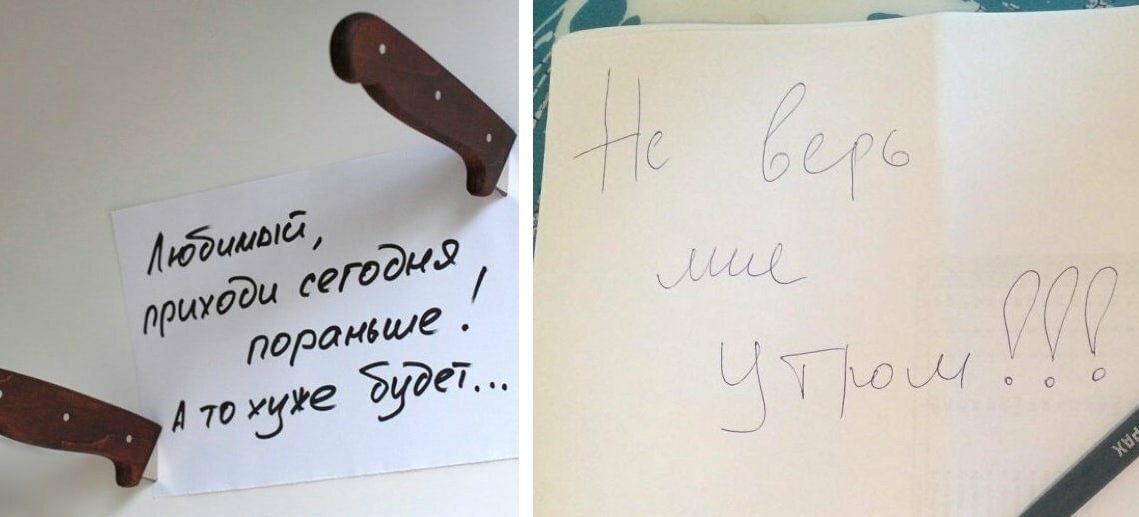 Любимый,
приходи сегодня
пораньше!
А то хуже будет...
Не верь
мне
утром!!!